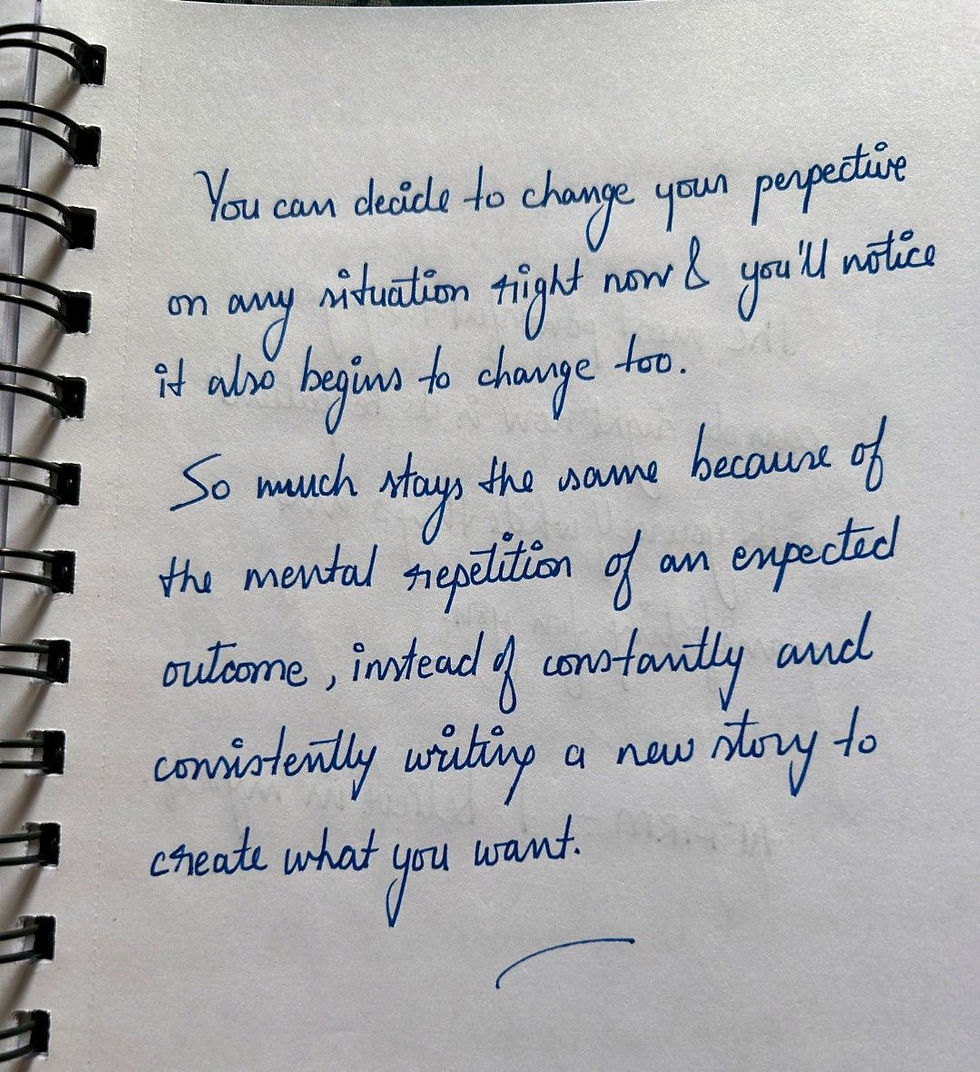 You can decide to change your perpective
on any situation right now & you'll notice
it also begins to change too.
So much stays the same because of
the mental repetition of an expected
outcome, instead of constantly and
consistently writing a new story to
create what you want.